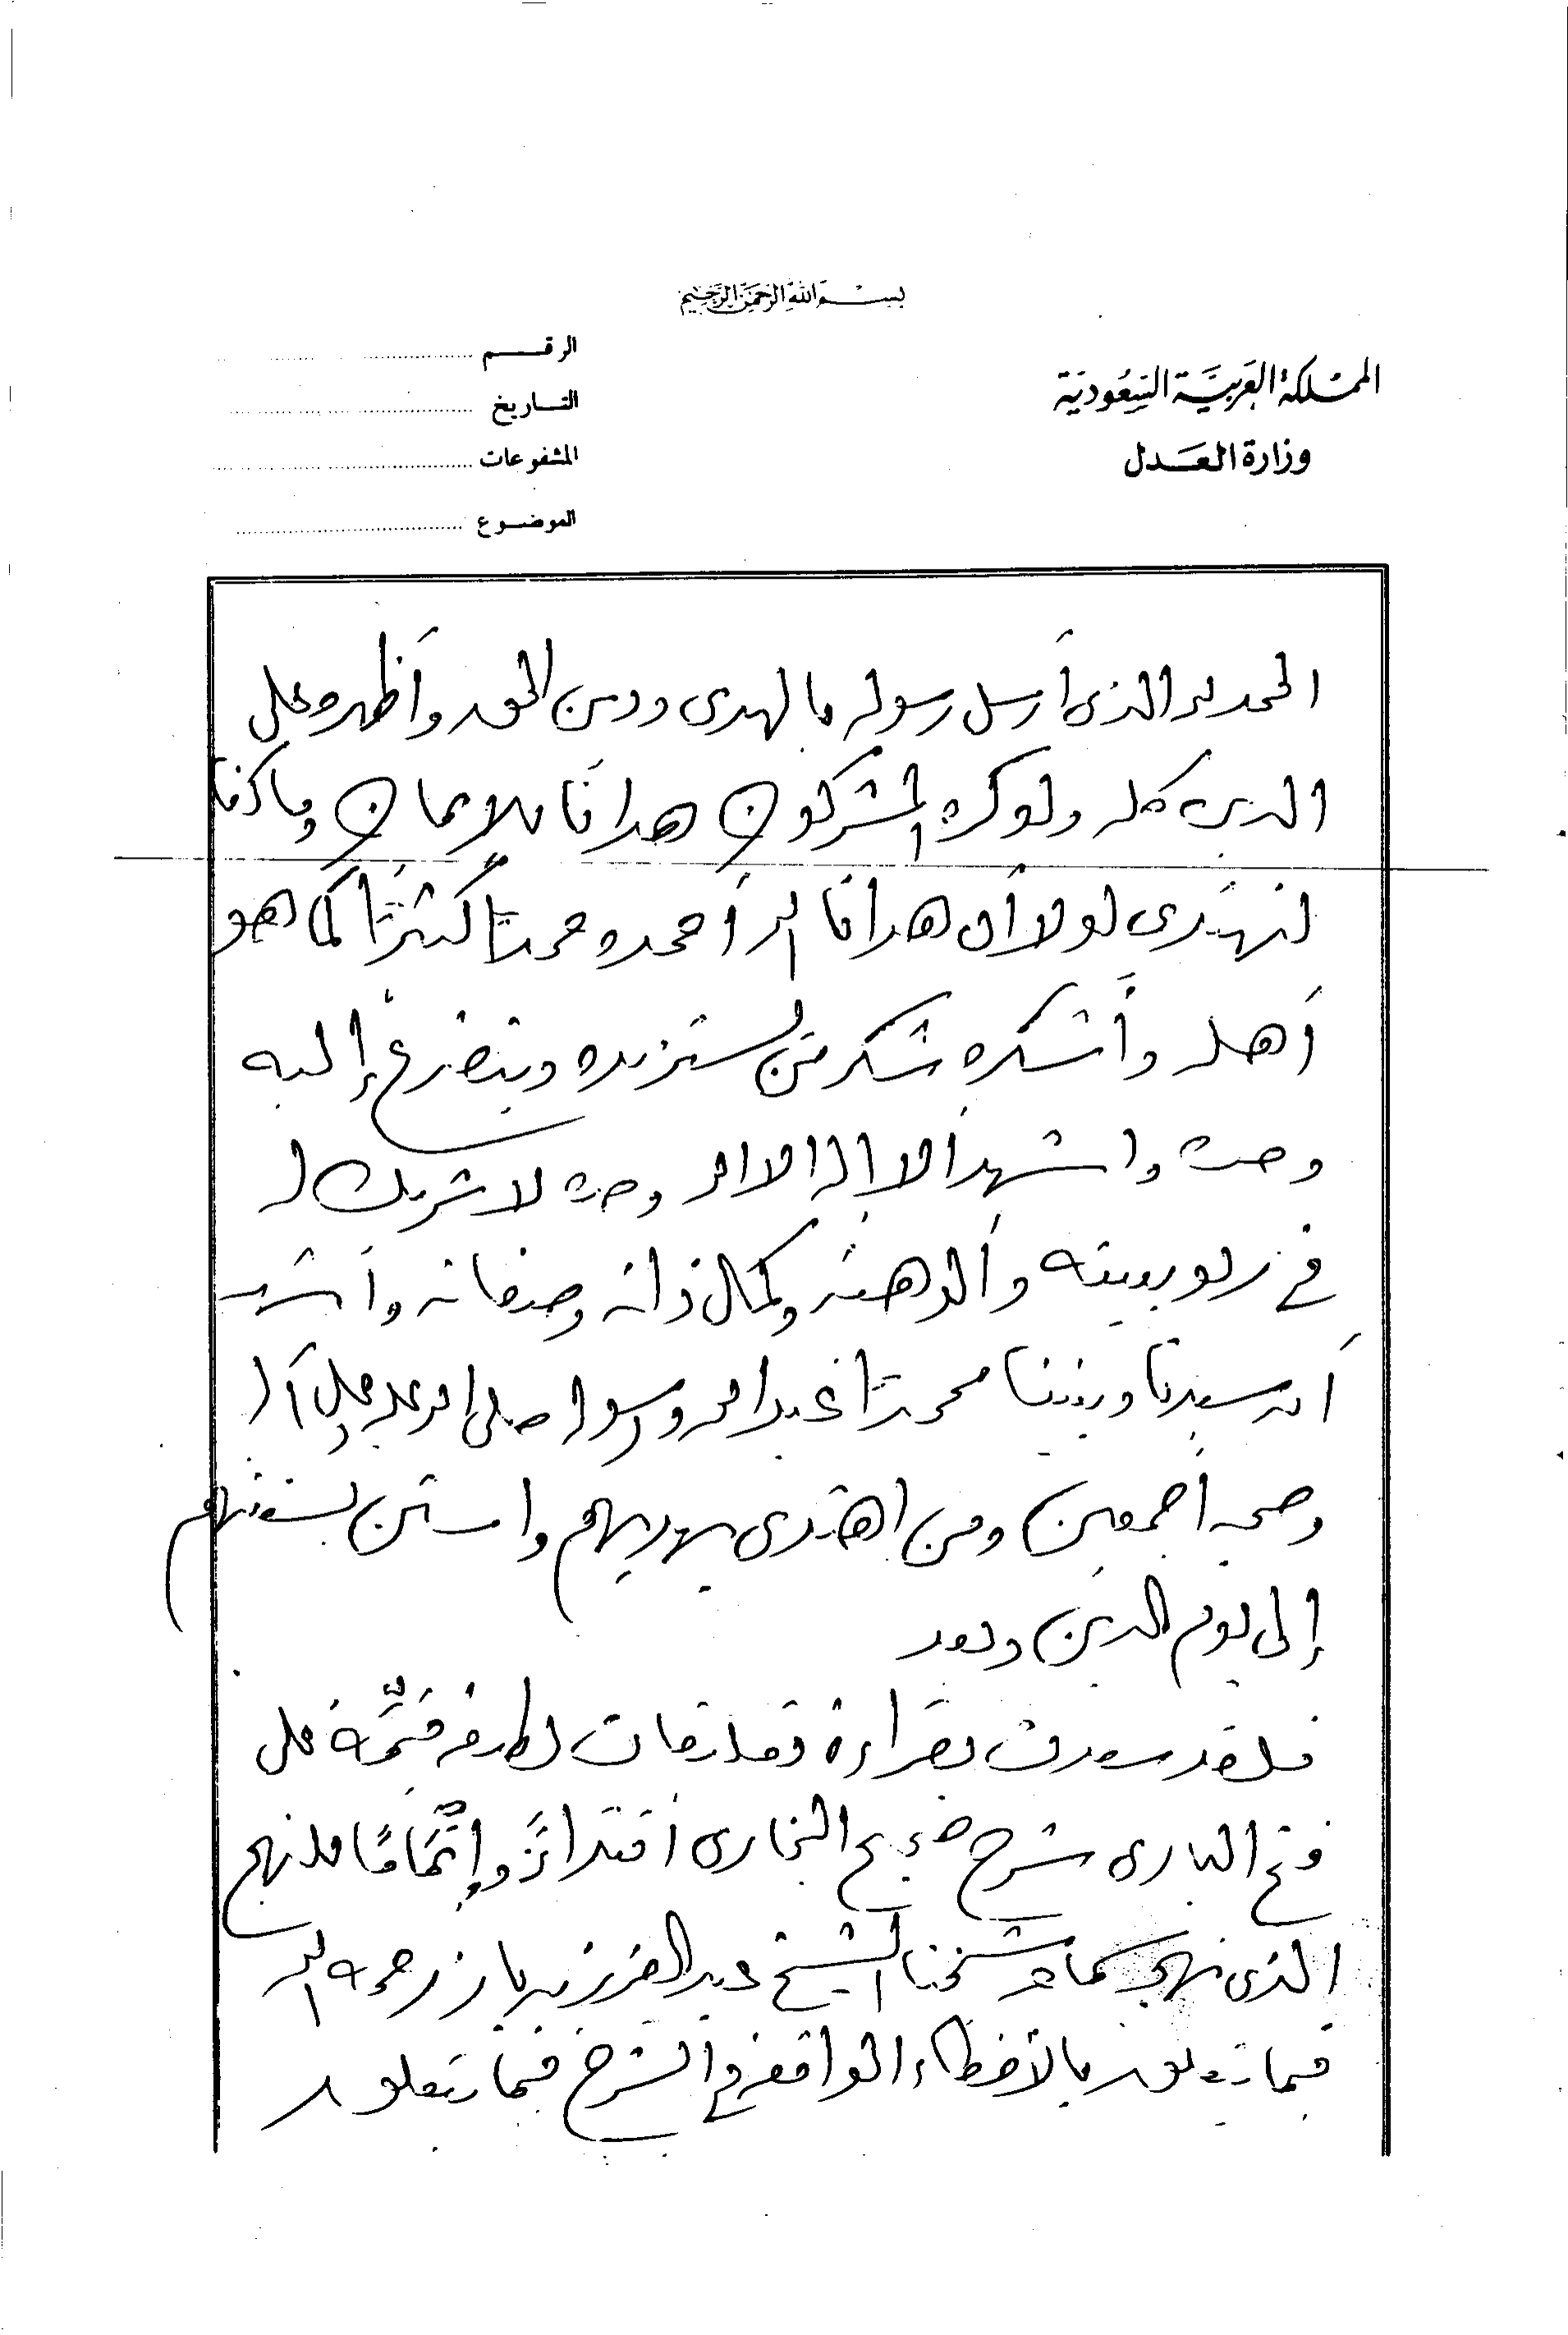 بسم الله الرحمن الرحيم
المملكة العربية السعودية
وزارة العدل
الرقم
التاريخ
المشفوعات
الموضوع
الحمد لله الذي أرسل رسوله بالهدى ودين الحق وأظهره على
الدين كله ولو كره المشركون هدانا للإيمان وما كنا
لنهتدي لولا أن هدانا الله أحمده حمدًا كثيرًا كما هو
أهله وأشكره شكر من يستزيده ويتضرع إليه
وحده واشهد ألا إله إلا الله وحده لا شريك له
في ربوبيته وألوهيته وكمال ذاته وصفاته وأشهد
أن سيدنا ونبينا محمدًا عبد الله ورسوله صلى الله عليه وعلى آله
وصحبه أجمعين ومن اهتدى بهديهم واستن بسنتهم
إلى يوم الدين وبعد
فلقد سعدت بقراءة تعليقات لطيفة قيّمة على
فتح الباري شرح صحيح البخاري اقتداءً وإتمامًا للنهج
الذي نهجه سماحة شيخنا الشيخ عبد العزيز بن باز رحمه الله
فيما يتعلق بالأخطاء الواقعة في الشرح فيما يتعلق